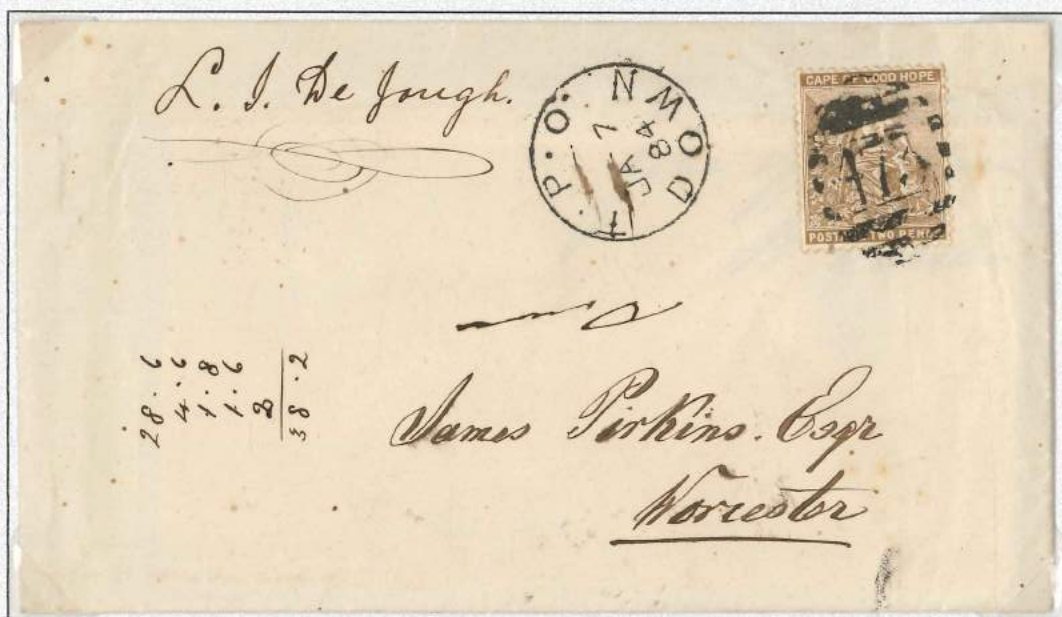 L. J. De Jongh.
T.P.O. DOWN
JA 7
84
CAPE OF GOOD HOPE
POSTAGE TWO PENCE
28.6
4.6
1.8
1.6
2
38.2
James Pirkins. Esqr
Worcester